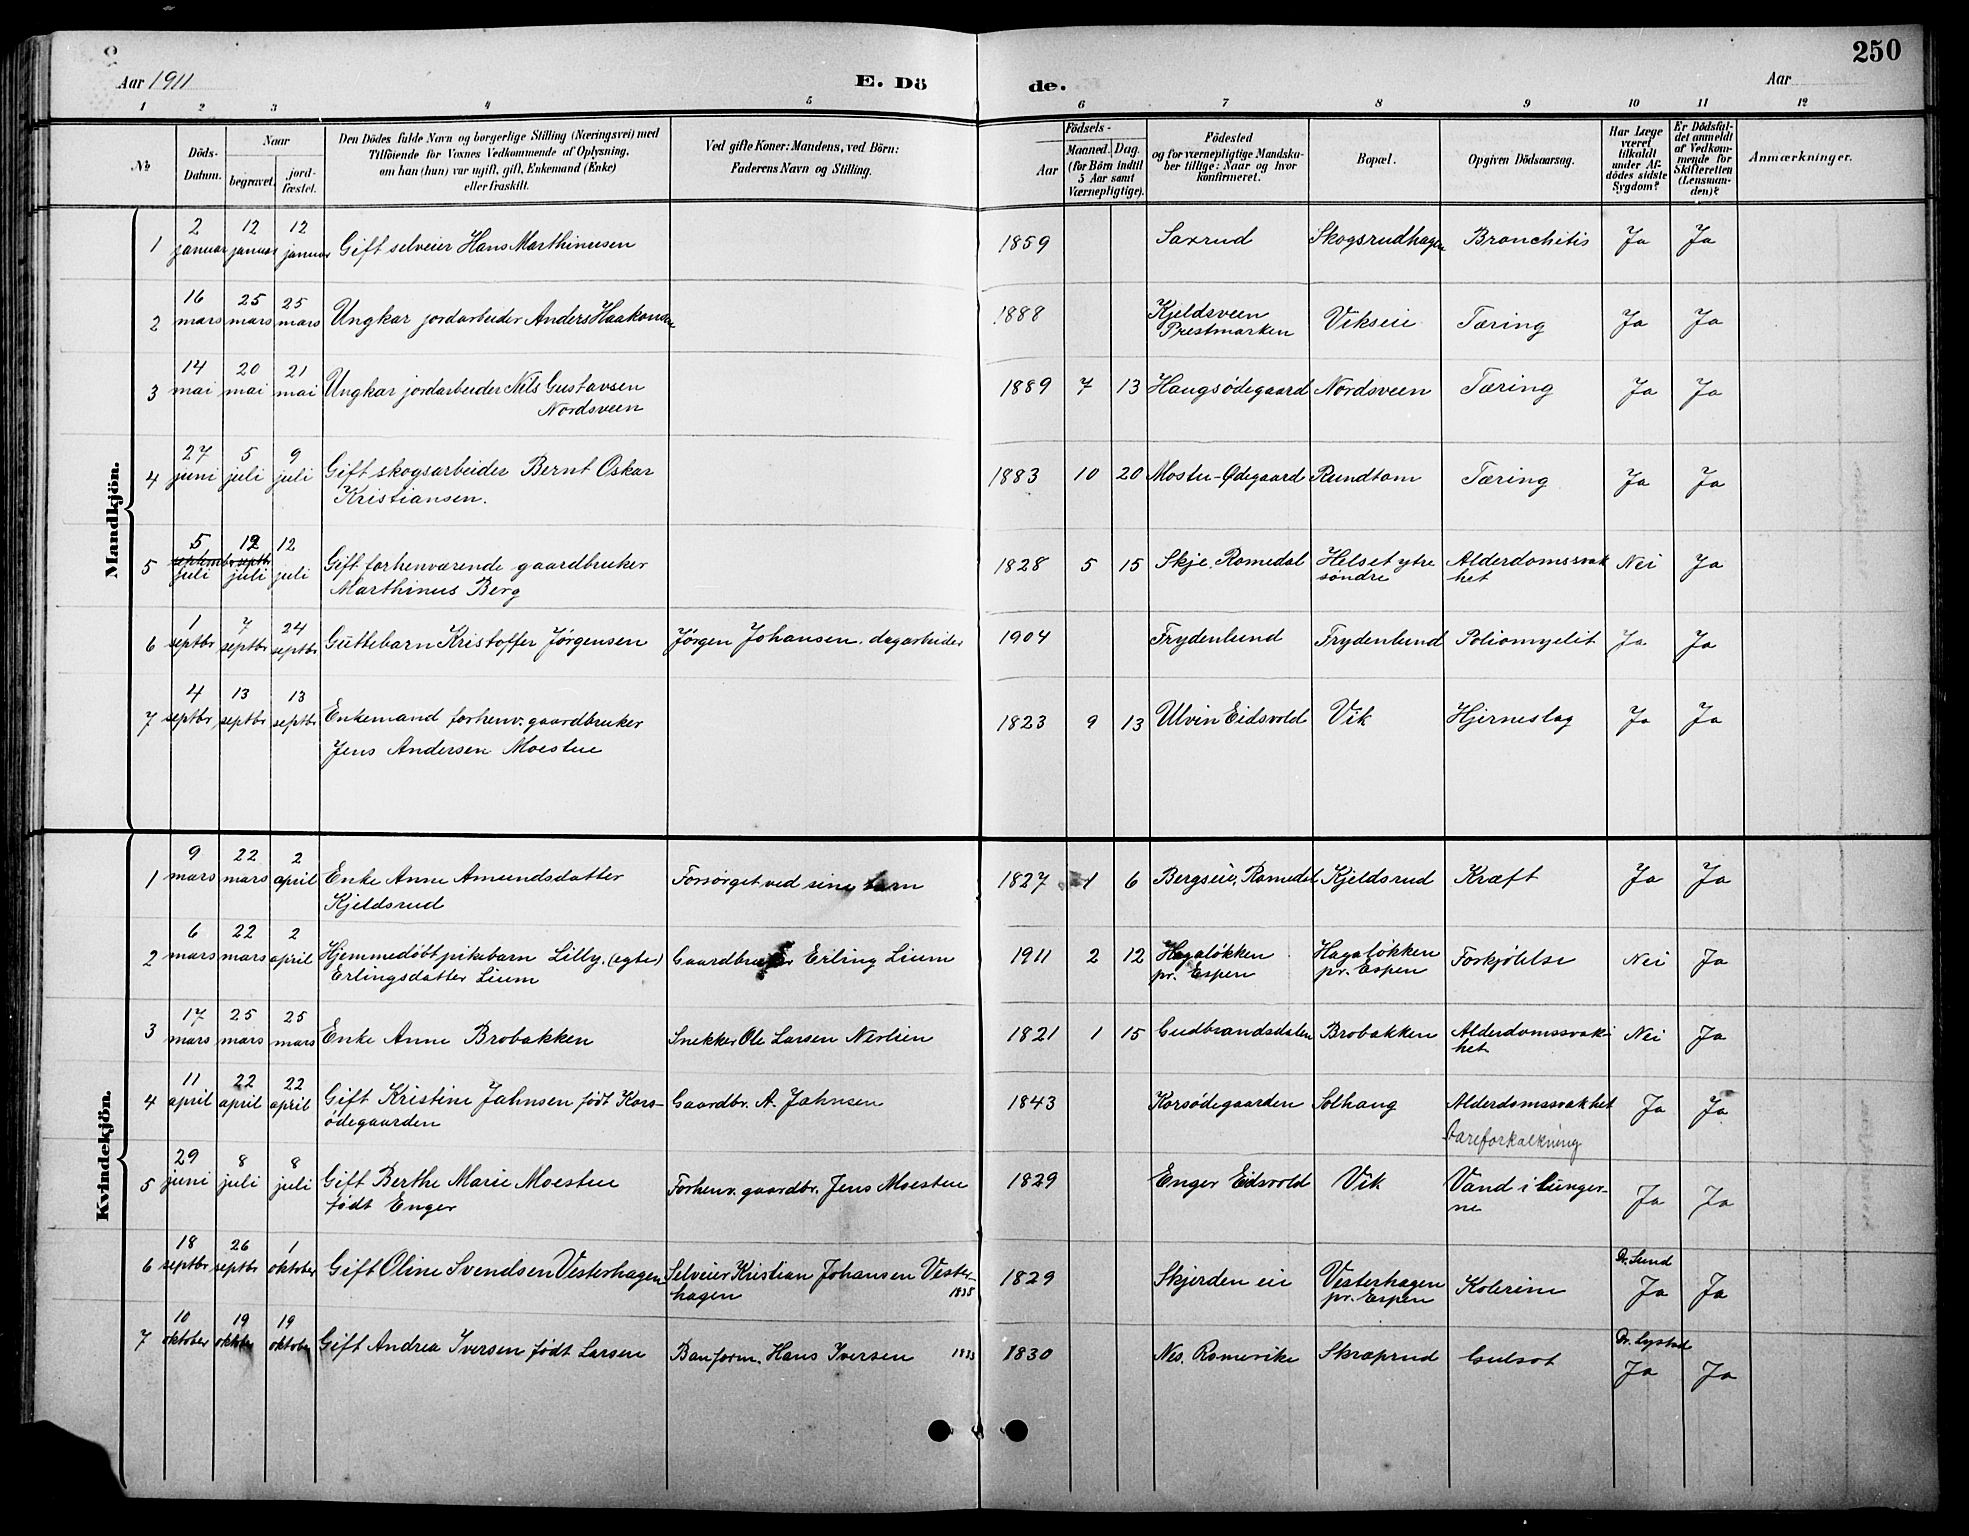 250
Aar 1911
E. Dö
de.
Aar
1 2 3 4 5 6 7 8 9 10 11 12
No
Döds-Datum.
Naar
begravet.
jord-fæstet.
Den Dödes fulde Navn og borgerlige Stilling (Næringsvei) med
Tilföiende for Voxnes Vedkommende af Oplysning,
om han (hun) var ugift, gift, Enkemand (Enke)
eller fraskilt.
Ved gifte Koner: Mandens, ved Börn:
Faderens Navn og Stilling.
Födsels-
Aar
Maaned. Dag.
(for Börn indtil
5 Aar samt
Værnepligtige).
Födested
og for værnepligtige Mandska-
ber tillige: Naar og hvor
konfirmeret.
Bopæl.
Opgiven Dödsaarsag.
Har Læge
været
tilkaldt
under Af-
dödes sidste
Sygdom?
Er Dödsfal-
det anmeldt
af Vedkom-
mende for
Skifteretten
(Lensman-
den)?
Anmærkninger.
Mandkjön.
1 2 januar 12 januar 12 januar Gift selveier Hans Marthinusen 1859 Saxrud Skogsrudhagen Bronchitis Ja Ja
2 16 mars 25 mars 25 mars Ungkar jordarbeider Anders Haakonsen 1888 Kjeldsveen Prestmarken Vikseie Tæring Ja Ja
3 14 mai 20 mai 21 mai Ungkar jordarbeider Nils Gustavsen Nordsveen 1889 7 13 Haugsødegaard Nordsveen Tæring Ja Ja
4 27 juni 5 juli 9 juli Gift skogsarbeider Bernt Oskar Kristiansen. 1883 10 20 Mostu-Ødegaard Rundtom Tæring Ja Ja
5 5 juli 12 juli 12 juli Gift forhenværende gaardbruker Marthinus Berg 1828 5 15 Skje, Romedal Helset ytre søndre Alderdomssvakhet Nei Ja
6 1 septbr 7 septbr 24 septbr Guttebarn Kristoffer Jørgensen Jørgen Johansen. dagarbeider 1904 Frydenlund Frydenlund Poliomyelit Ja Ja
7 4 septbr 13 septbr 13 septbr Enkemand forhenv. gaardbruker Jens Andersen Moestue 1823 9 13 Ulvin Eidsvold Vik Hjerneslag Ja Ja
Kvindekjön.
1 9 mars 22 mars 2 april Enke Anne Amundsdatter Kjeldsrud Forsørget ved sine barn 1827 1 6 Bergseie, Romedal Kjeldsrud Kræft Ja Ja
2 6 mars 22 mars 2 april Hjemmedøbt pikebarn Lilly, (egte) Erlingsdatter Lium Gaardbruker Erling Lium 1911 2 12 Hagaløkken pr. Espen Hagaløkken pr. Espen Forkjølelse Nei Ja
3 17 mars 25 mars 25 mars Enke Anne Brobakken Snekker Ole Larsen Nerlien 1821 1 15 Gudbrandsdalen Brobakken Alderdomssvakhet Nei Ja
4 11 april 22 april 22 april Gift Kristine Jahnsen født Kors-ødegaarden Gaardbr. A. Jahnsen 1843 Korsødegaarden Solhaug Alderdomssvakhet Aareforkalkning Ja Ja
5 29 juni 8 juli 8 juli Gift Berthe Marie Moestue født Enger Forhenv. gaardbr. Jens Moestue 1829 Enger Eidsvold Vik Vand i lunger-ne Ja Ja
6 18 septbr 26 septbr 1 oktober Gift Oline Svendsen Vesterhagen Selveier Kristian Johansen Vester-hagen 1835 1829 Skjerden eie Vesterhagen pr. Espen Kolerine Dr. Lund Ja Ja
7 10 oktober 19 oktober 19 oktober Gift Andrea Iversen født Larsen Banform. Hans Iversen 1833 1830 Nes. Romerike Skraprud Gulsot Dr. Lystad Ja Ja